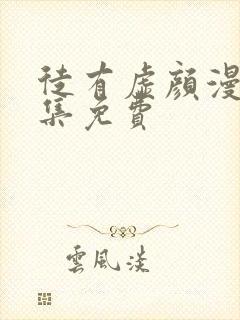 徒有虛顏漫
集免費
雲風淡